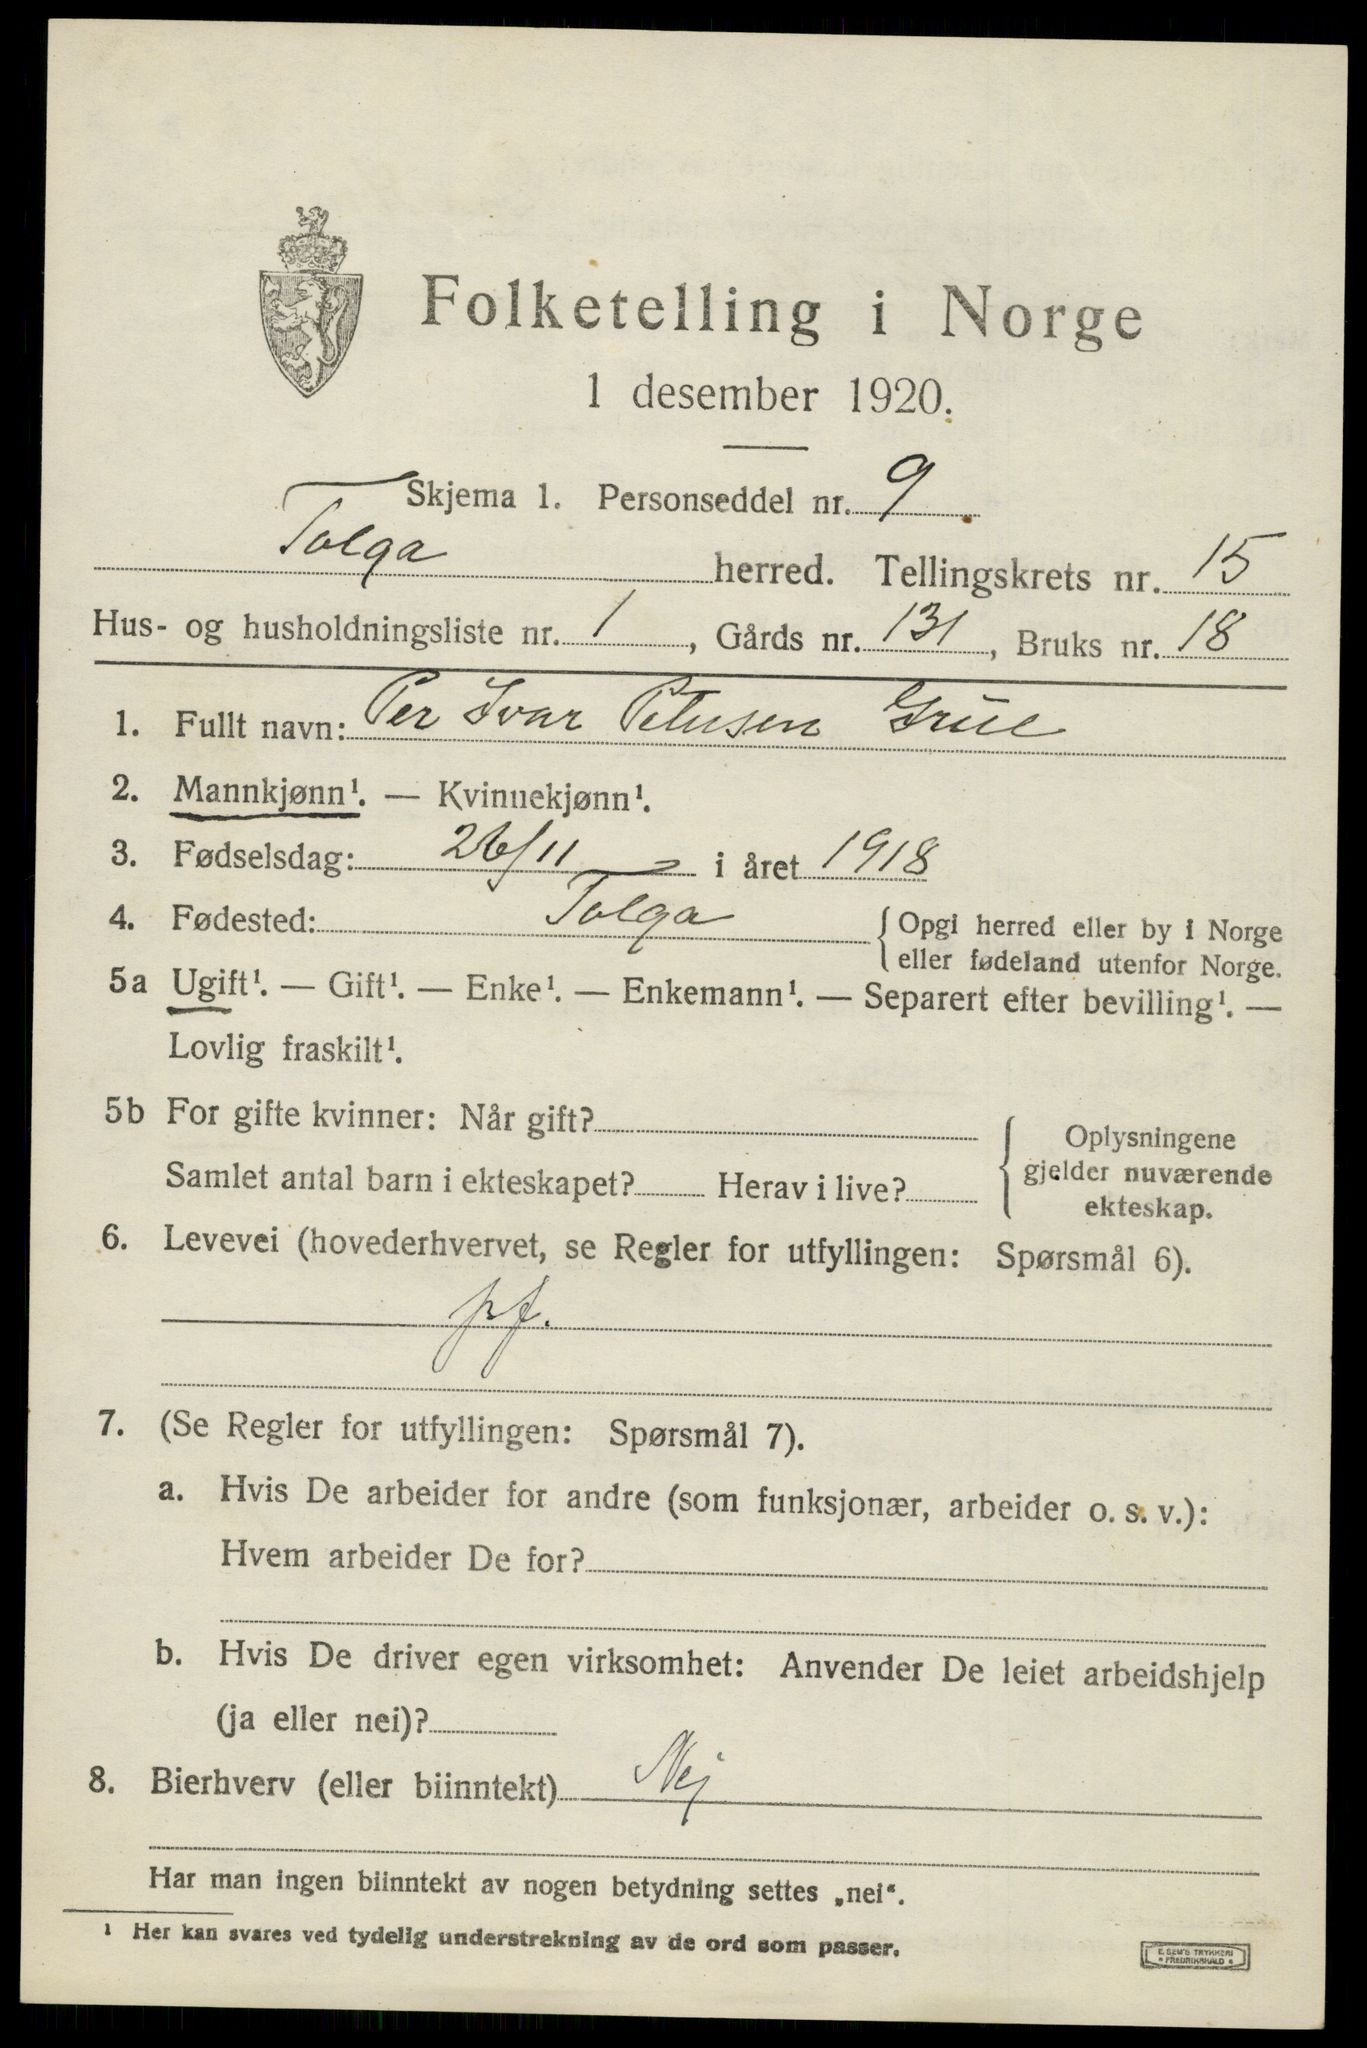 Folketelling i Norge
1 desember 1920.
Skjema 1. Personseddel nr. 9
Tolga herred. Tellingskrets nr. 15
Hus- og husholdningsliste nr. 1, Gårds nr. 131, Bruks nr. 18
1. Fullt navn: Per Ivar Petersen
2. Mannkjønn¹. — Kvinnekjønn¹.
3. Fødselsdag: 26/11 i året 1918
4. Fødested: Tolga { Opgi herred eller by i Norge
eller fødeland utenfor Norge.
5a Ugift¹. — Gift¹. — Enke¹. — Enkemann¹. — Separert efter bevilling¹. —
Lovlig fraskilt¹.
5b For gifte kvinner: Når gift?
Samlet antal barn i ekteskapet? Herav i live?
{ Oplysningene
gjelder nuværende
ekteskap.
6. Levevei (hovederhvervet, se Regler for utfyllingen: Spørsmål 6).
pf.
7. (Se Regler for utfyllingen: Spørsmål 7).
a. Hvis De arbeider for andre (som funksjonær, arbeider o. s. v.):
Hvem arbeider De for?
b. Hvis De driver egen virksomhet: Anvender De leiet arbeidshjelp
(ja eller nei)?
8. Bierhverv (eller biinntekt) Nej
Har man ingen biinntekt av nogen betydning settes „nei“.
¹ Her kan svares ved tydelig understrekning av de ord som passer.
E. SEM'S TRYKKERI
• FREDRIKSHALD •